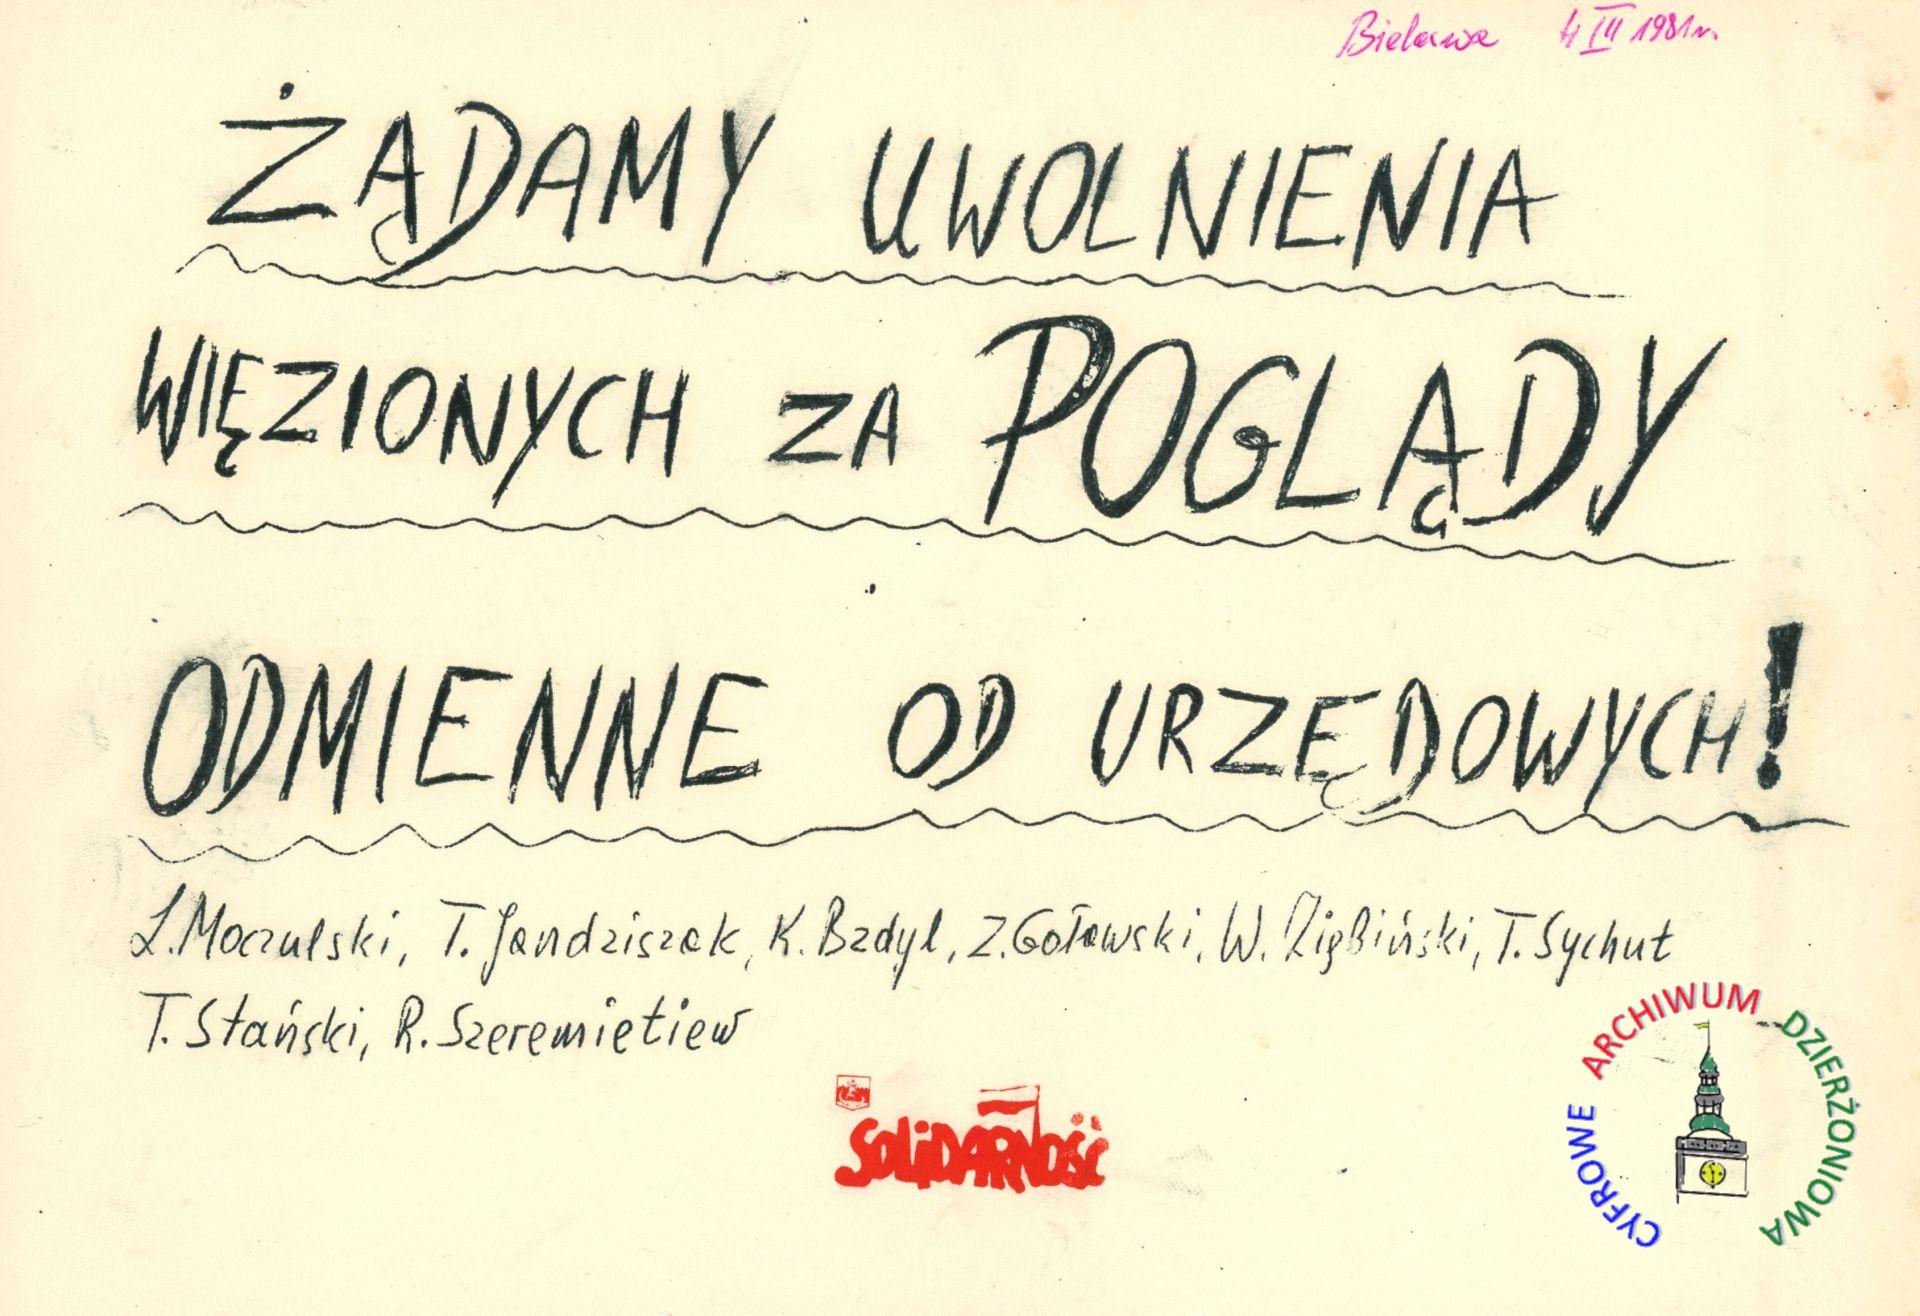 Bielawa 4 III 1981r.
ŻĄDAMY UWOLNIENIA
WIĘZIONYCH ZA POGLĄDY
ODMIENNE OD URZĘDOWYCH!
L. Moczulski, T. Jandziszak, K. Bzdyl, Z. Goławski, W. Ziębiński, T. Sychut
T. Stański, R. Szeremietiew
SOLIDARNOŚĆ
CYFROWE ARCHIWUM DZIERŻONIOWA